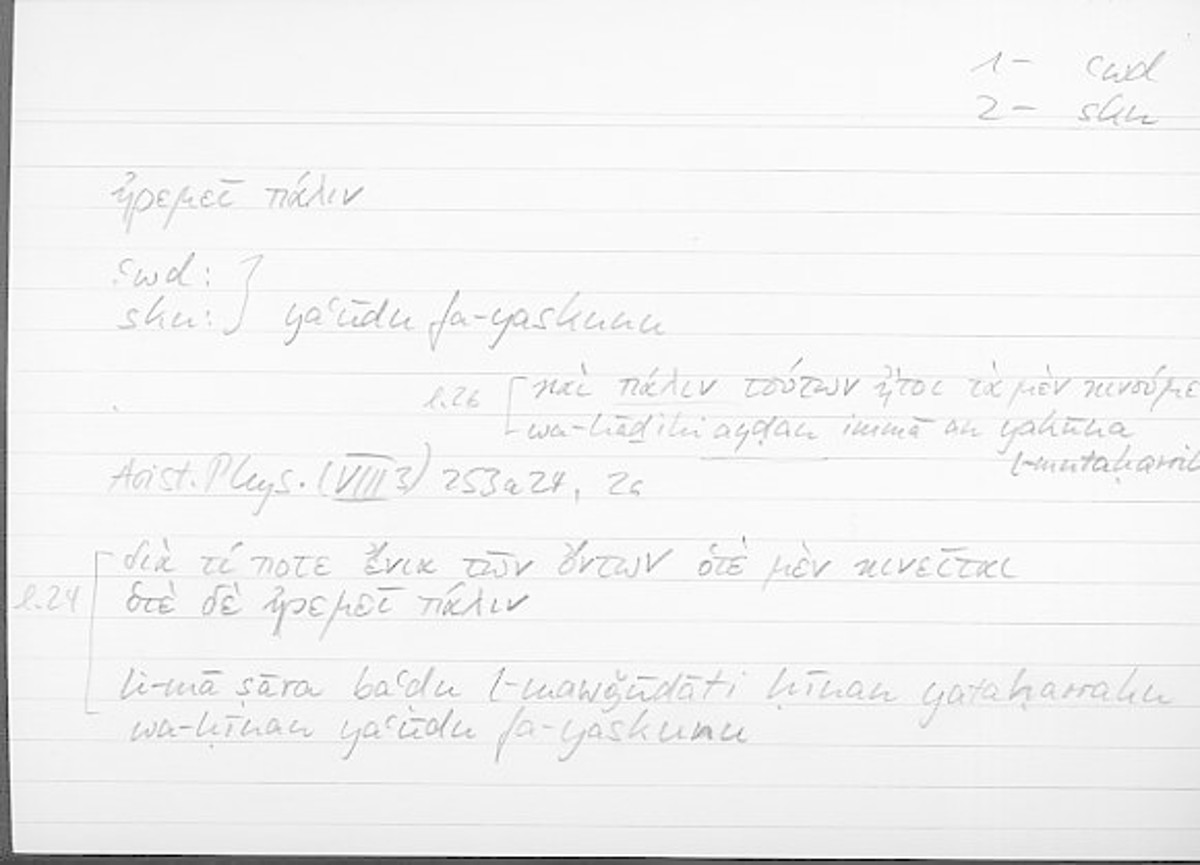 1- ʿwd
2- skn
ἠρεμεῖ πάλιν
ʿwd:
skn: } yaʿūdu fa-yaskunu
l.26 [ καὶ πάλιν τούτων ἤτοι τὰ μὲν κινούμε
wa-hāḏihi ayḍan immā an yakūna
l-mutaḥarrik
Arist. Phys. (VIII 3) 253a24, 26
διὰ τί ποτε ἔνια τῶν ὄντων ὁτὲ μὲν κινεῖται
l.24 [ ὁτὲ δὲ ἠρεμεῖ πάλιν
li-mā ṣāra baʿḍu l-mawǧūdāti ḥīnan yataḥarraku
wa-ḥīnan yaʿūdu fa-yaskunu